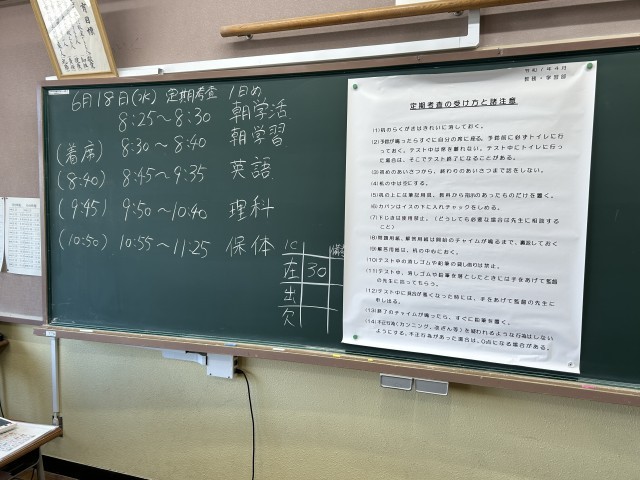 6月18日(水) 定期考査 1日め
8:25～8:30 朝学活
8:30～8:40 朝学習
(着席)
(8:40) 8:45～9:35 英語
(9:45) 9:50～10:40 理科
(10:50) 10:55～11:25 保体
1C
在 30
出
欠
令和7年4月
教務・学習部
定期考査の受け方と諸注意
(1)机のらくがきはきれいに消しておく。
(2)予鈴が鳴ったらすぐに自分の席に座る。予鈴前に必ずトイレに行
っておく。テスト中は席を離れない。テスト中にトイレに行っ
た場合は、そこでテスト終了になることがある。
(3)始めのあいさつから、終わりのあいさつまで話をしない。
(4)机の中は空にする。
(5)机の上には筆記用具、教科から指示のあったものだけを置く。
(6)カバンはイスの下に入れチャックをしめる。
(7)下じきは使用禁止。（どうしても必要な場合は先生に相談する
こと）
(8)問題用紙、解答用紙は開始のチャイムが鳴るまで、裏返しておく
(9)解答用紙は、机の中心におく。
(10)テスト中の消しゴムや鉛筆の貸し借りは禁止。
(11)テスト中、消しゴムや鉛筆を落としたときには手をあげて監督
の先生に拾ってもらう。
(12)テスト中に具合が悪くなった時には、手をあげて監督の先生に
申し出る。
(13)終了のチャイムが鳴ったら、すぐに鉛筆を置く。
(14)不正行為(カンニング、改ざん等)を疑われるような行為はしない
ようにする。不正行為があった場合は、0点になる場合がある。